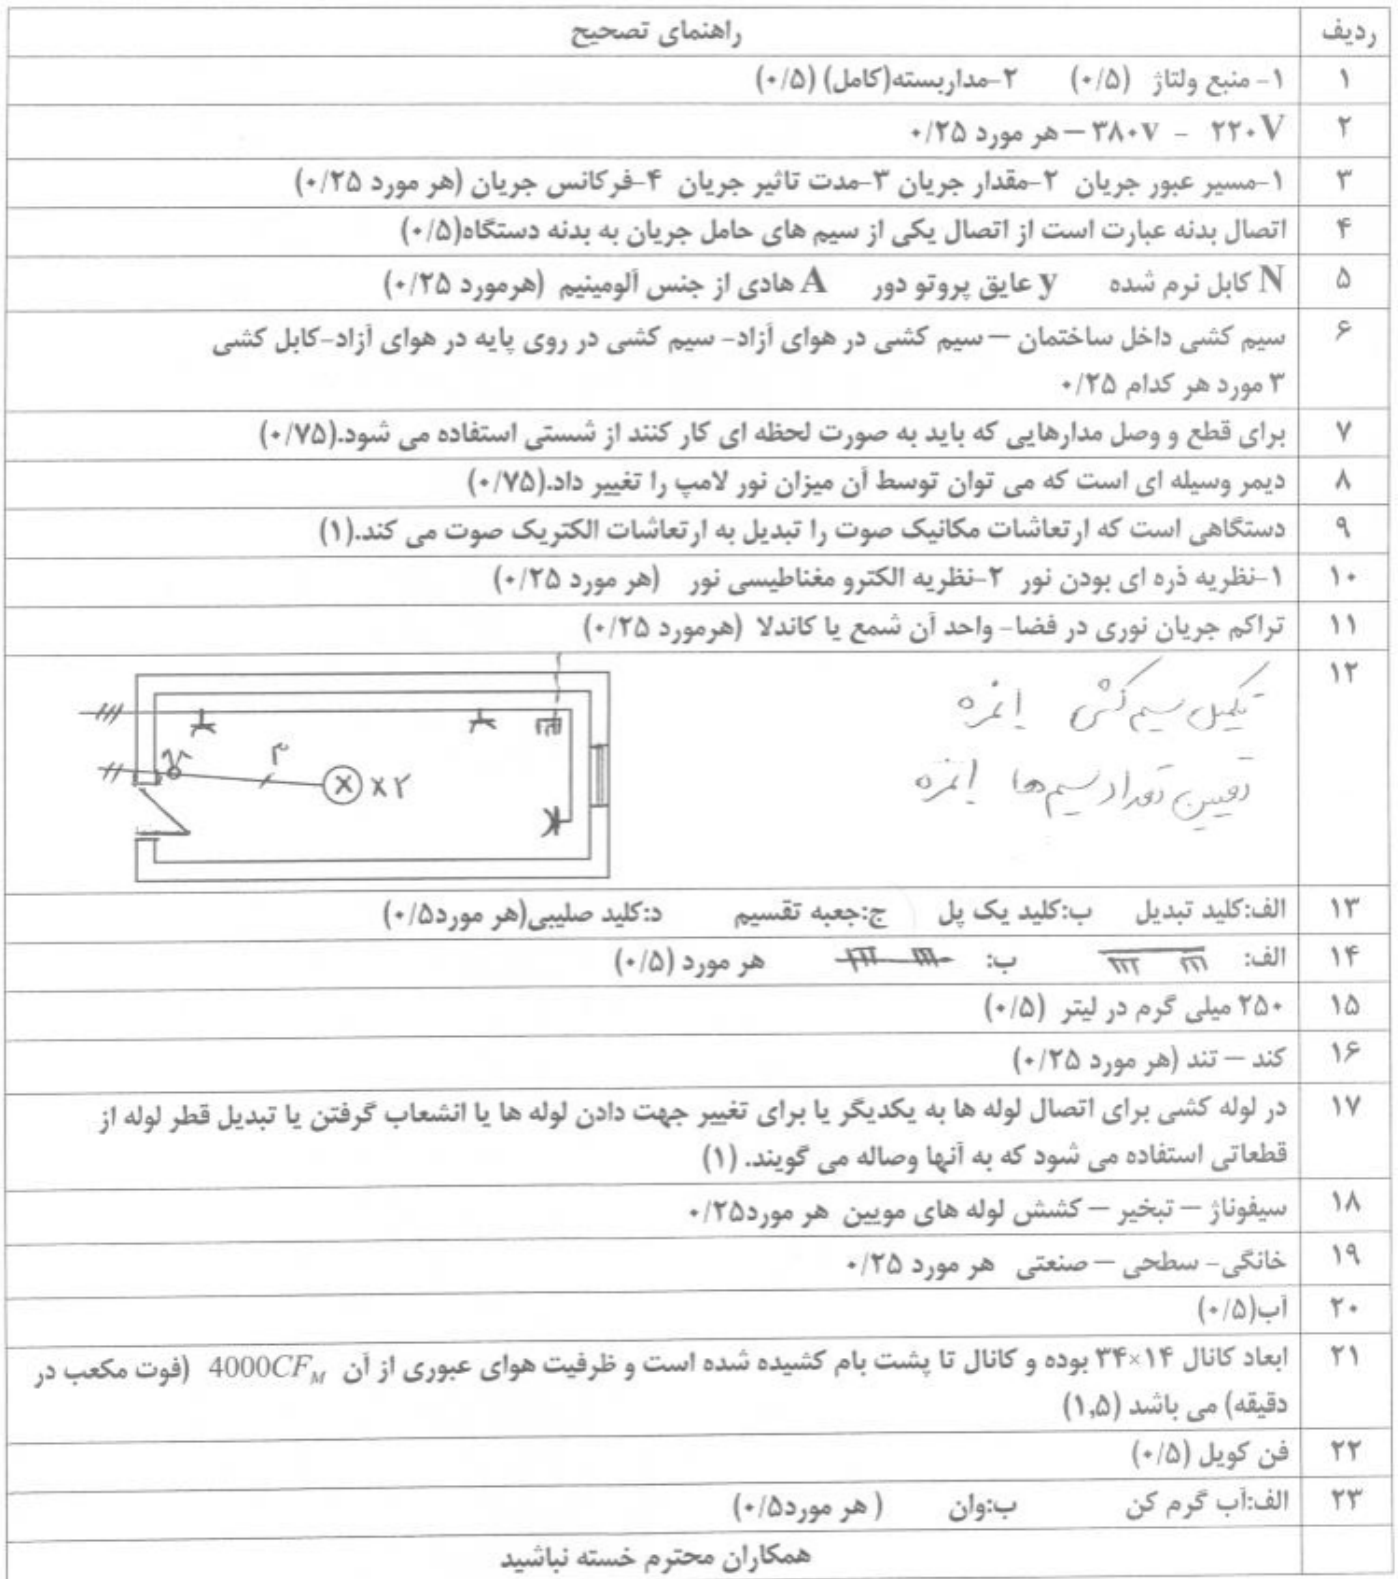 ردیف راهنمای تصحیح
۱ ۱- منبع ولتاژ (۰/۵) ۲-مداربسته(کامل) (۰/۵)
۲ ۲۲۰V - ۳۸۰v – هر مورد ۰/۲۵
۳ ۱-مسیر عبور جریان ۲-مقدار جریان ۳-مدت تاثیر جریان ۴-فرکانس جریان (هر مورد ۰/۲۵)
۴ اتصال بدنه عبارت است از اتصال یکی از سیم های حامل جریان به بدنه دستگاه(۰/۵)
۵ N کابل نرم شده y عایق پروتو دور A هادی از جنس آلومینیم (هرمورد ۰/۲۵)
۶ سیم کشی داخل ساختمان – سیم کشی در هوای آزاد- سیم کشی در روی پایه در هوای آزاد-کابل کشی
۳ مورد هر کدام ۰/۲۵
۷ برای قطع و وصل مدارهایی که باید به صورت لحظه ای کار کنند از شستی استفاده می شود.(۰/۷۵)
۸ دیمر وسیله ای است که می توان توسط آن میزان نور لامپ را تغییر داد.(۰/۷۵)
۹ دستگاهی است که ارتعاشات مکانیک صوت را تبدیل به ارتعاشات الکتریک صوت می کند.(۱)
۱۰ ۱-نظریه ذره ای بودن نور ۲-نظریه الکترو مغناطیسی نور (هر مورد ۰/۲۵)
۱۱ تراکم جریان نوری در فضا- واحد آن شمع یا کاندلا (هرمورد ۰/۲۵)
۱۲ تکمیل سیم کشی ۱نمره
تعیین تعداد سیم ها ۱نمره
۳
×۲
۱۳ الف:کلید تبدیل ب:کلید یک پل ج:جعبه تقسیم د:کلید صلیبی(هر مورد۰/۵)
۱۴ الف: ب: هر مورد (۰/۵)
۱۵ ۲۵۰ میلی گرم در لیتر (۰/۵)
۱۶ کند – تند (هر مورد ۰/۲۵)
۱۷ در لوله کشی برای اتصال لوله ها به یکدیگر یا برای تغییر جهت دادن لوله ها یا انشعاب گرفتن یا تبدیل قطر لوله از
قطعاتی استفاده می شود که به آنها وصاله می گویند. (۱)
۱۸ سیفوناژ – تبخیر – کشش لوله های مویین هر مورد۰/۲۵
۱۹ خانگی- سطحی – صنعتی هر مورد ۰/۲۵
۲۰ آب(۰/۵)
۲۱ ابعاد کانال ۱۴×۳۴ بوده و کانال تا پشت بام کشیده شده است و ظرفیت هوای عبوری از آن 4000CFM (فوت مکعب در
دقیقه) می باشد (۱,۵)
۲۲ فن کویل (۰/۵)
۲۳ الف:آب گرم کن ب:وان ( هر مورد۰/۵)
همکاران محترم خسته نباشید